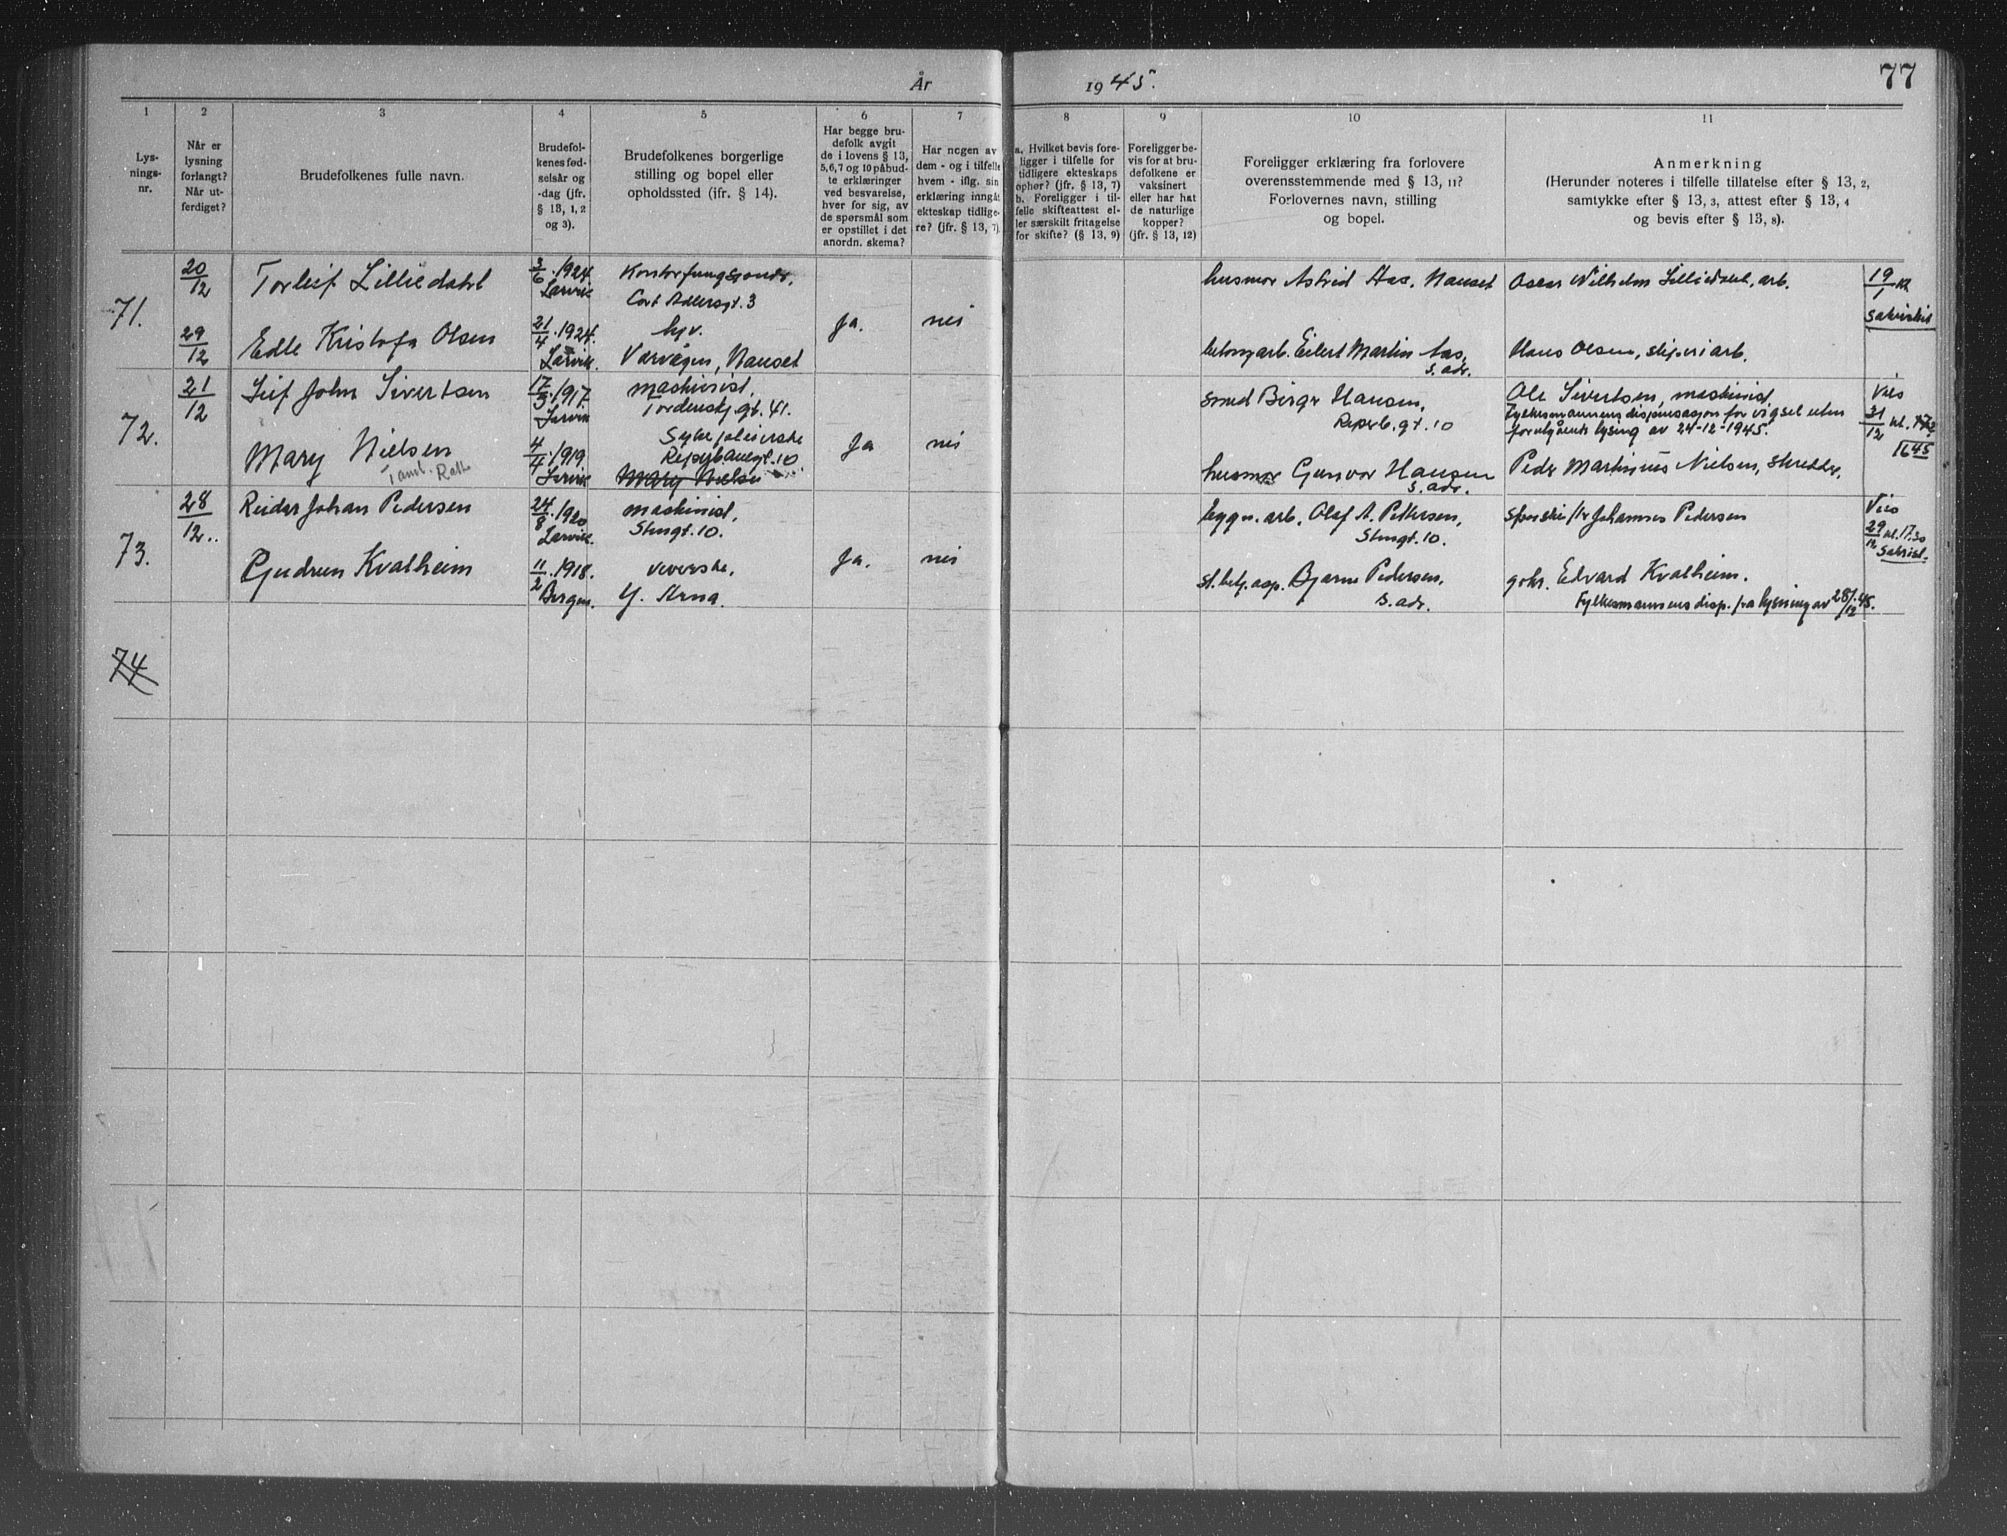 År 1945.
77
1
2
3
4
5
6
7
8
9
10
11
Lys-
nings-
nr.
Når er
lysning
forlangt?
Når ut-
ferdiget?
Brudefolkenes fulle navn.
Brudefol-
kenes fød-
selsår og
-dag (jfr.
§ 13, 1, 2
og 3).
Brudefolkenes borgerlige
stilling og bopel eller
opholdssted (jfr. § 14).
Har begge bru-
defolk avgit
de i lovens § 13,
5,6,7 og 10 påbud-
te erklæringer
ved besvarelse,
hver for sig, av
de spørsmål som
er opstillet i det
anordn. skema?
Har nogen av
dem - og i tilfelle
hvem - iflg. sin
erklæring inngåt
ekteskap tidlige-
re? (jfr. § 13, 7).
a. Hvilket bevis fore-
ligger i tilfelle for
tidligere ekteskaps
ophør? (jfr. § 13, 7)
b. Foreligger i til-
felle skifteattest el-
ler særskilt fritagelse
for skifte? (§ 13, 9)
Foreligger be-
vis for at bru-
defolkene er
vaksinert
eller har hat
de naturlige
kopper?
(jfr. § 13, 12)
Foreligger erklæring fra forlovere
overensstemmende med § 13, 11?
Forlovernes navn, stilling
og bopel.
Anmerkning
(Herunder noteres i tilfelle tillatelse efter § 13, 2,
samtykke efter § 13, 3, attest efter § 13, 4
og bevis efter § 13, 8).
71.
20/12
29/12
Torleif Lilliedahl
3/6.1924.
Larvik
Cort Adlersgt. 3
Edle Kristofa Olsen
21/4.1924.
Larvik.
hjv.
Varvegen, Nanset
Ja.
nei
husmor Astrid Aas, Nanset
betongarb. Eilert Martin Aas,
s. adr.
Oscar Wilhelm Lilliedahl, arb.
Hans Olsen, sliperiarb.
19/1 kl
sakristiet
72.
21/12
Leif John Sivertsen
17/3.1917.
Larvik
maskinist,
Tordenskj.gt. 41.
Mary Nielsen
4/4.1919.
Larvik
Sykepleierske
Reperbanegt. 10
Mary Nielsen
Ja
nei
smed Birger Hansen,
Reperb.gt. 10
husmor Gunvor Hansen
s. adr.
Ole Sivertsen, maskinist
Fylkesmannens dispensasjon for vigsel uten
foregående lysing av 24-12-1945.
Peder Martinius Nielsen, skredder,
Vies
31/12 kl.
16 45
73.
28/12..
Reidar Johan Pedersen
24/8.1920
Larvik.
maskinist,
Stengt. 10.
Gudrun Kvalheim
11/2.1918.
Bergen.
veverske,
Y. Arna.
Ja.
nei
bygn. arb. Olaf A. Pettersen,
Stengt. 10.
st. betj. asp. Bjarne Pedersen,
s. adr.
Johannes Pedersen
Edvard Kvalheim.
Fylkesmannens disp. fra lysning av 28/12 45.
Vies
29/12 kl. 17.30
Sakrist.
74